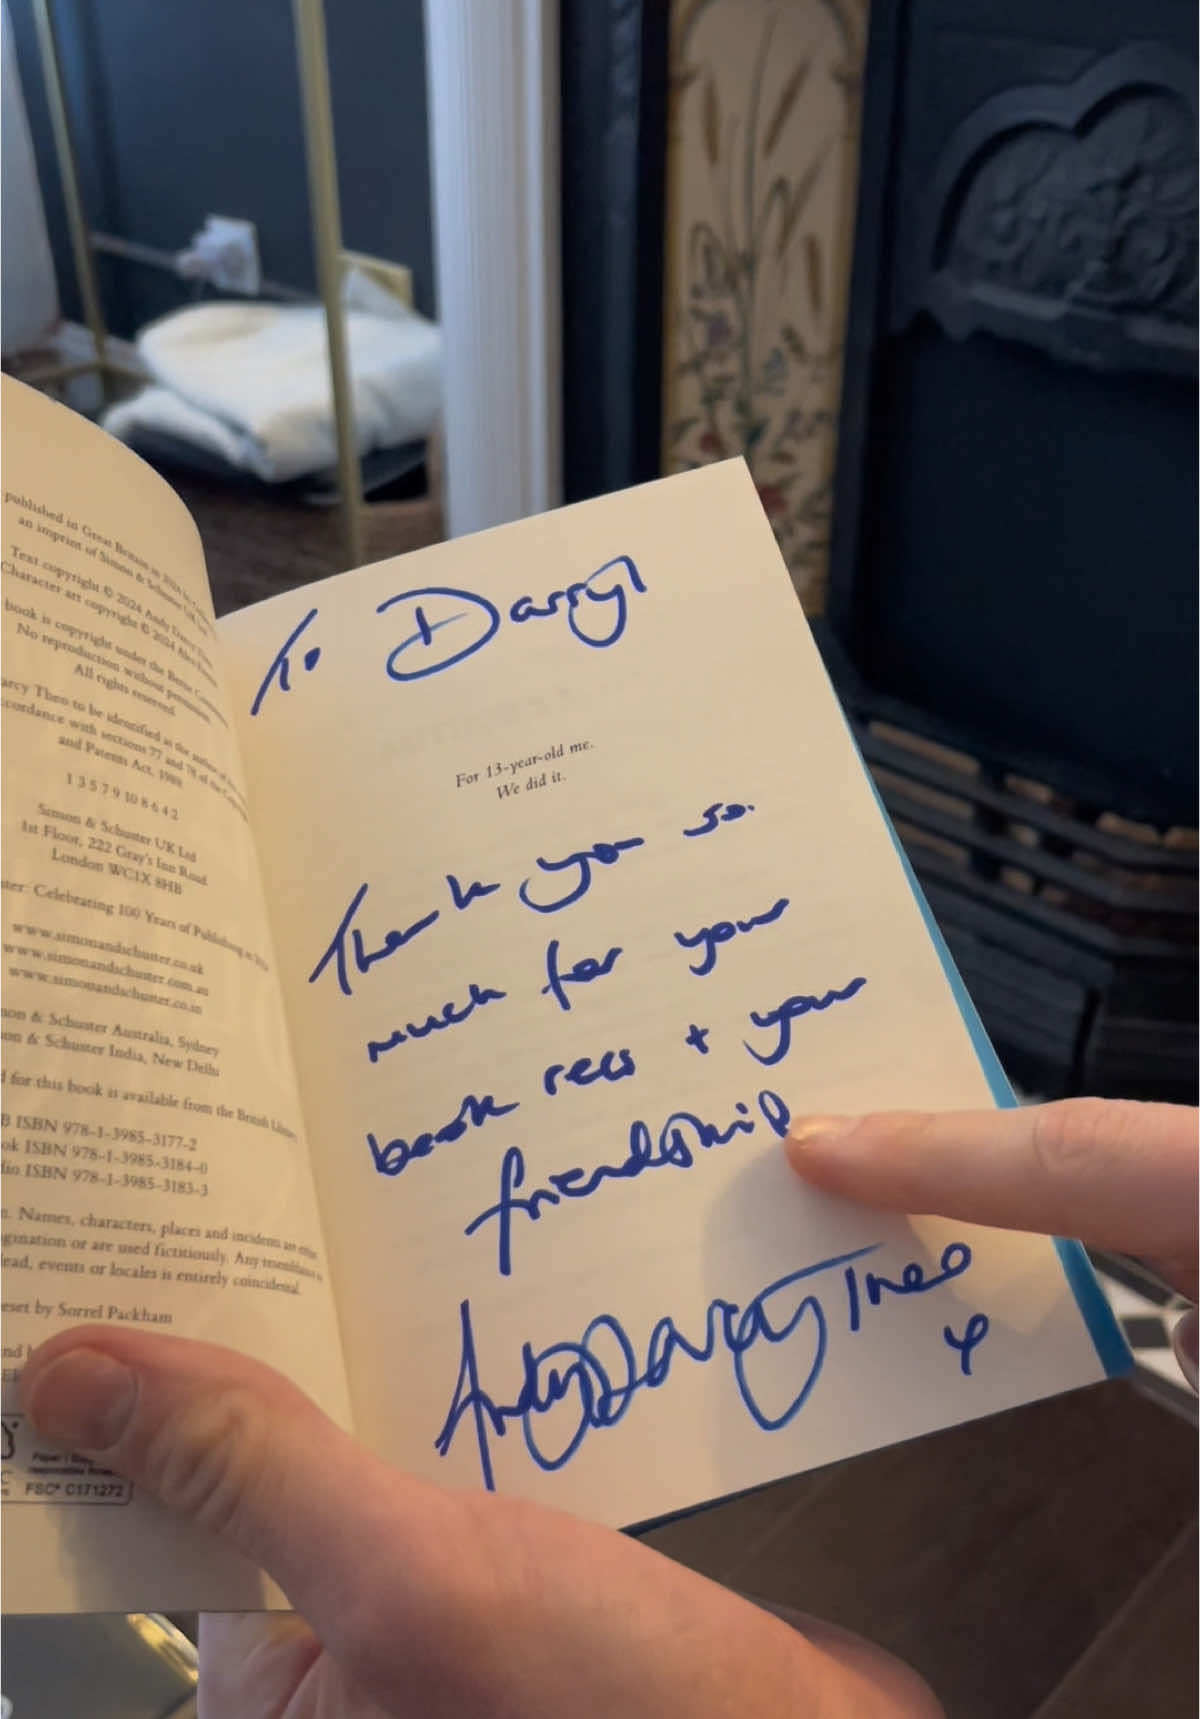 published in Great Britain in 2024 by
an imprint of Simon & Schuster UK Ltd
Text copyright © 2024 Andy Darcy Theo
Character art copyright © 2024
book is copyright under the Berne Convention
No reproduction without permission.
All rights reserved.
arcy Theo to be identified as the author of
ccordance with sections 77 and 78 of the Copyright,
and Patents Act, 1988.
1 3 5 7 9 10 8 6 4 2
Simon & Schuster UK Ltd
1st Floor, 222 Gray's Inn Road
London WC1X 8HB
ster: Celebrating 100 Years of Publishing in 2024
www.simonandschuster.co.uk
www.simonandschuster.com.au
www.simonandschuster.co.in
mon & Schuster Australia, Sydney
on & Schuster India, New Delhi
d for this book is available from the British Library
B ISBN 978-1-3985-3177-2
ok ISBN 978-1-3985-3184-0
dio ISBN 978-1-3985-3183-3
n. Names, characters, places and incidents are either
gination or are used fictitiously. Any resemblance to
lead, events or locales is entirely coincidental.
eset by Sorrel Packham
nd b
FSC® C171272
To Darryl
For 13-year-old me.
We did it.
Thank you so
much for your
book recs + your
friendship
Andy Darcy Theo